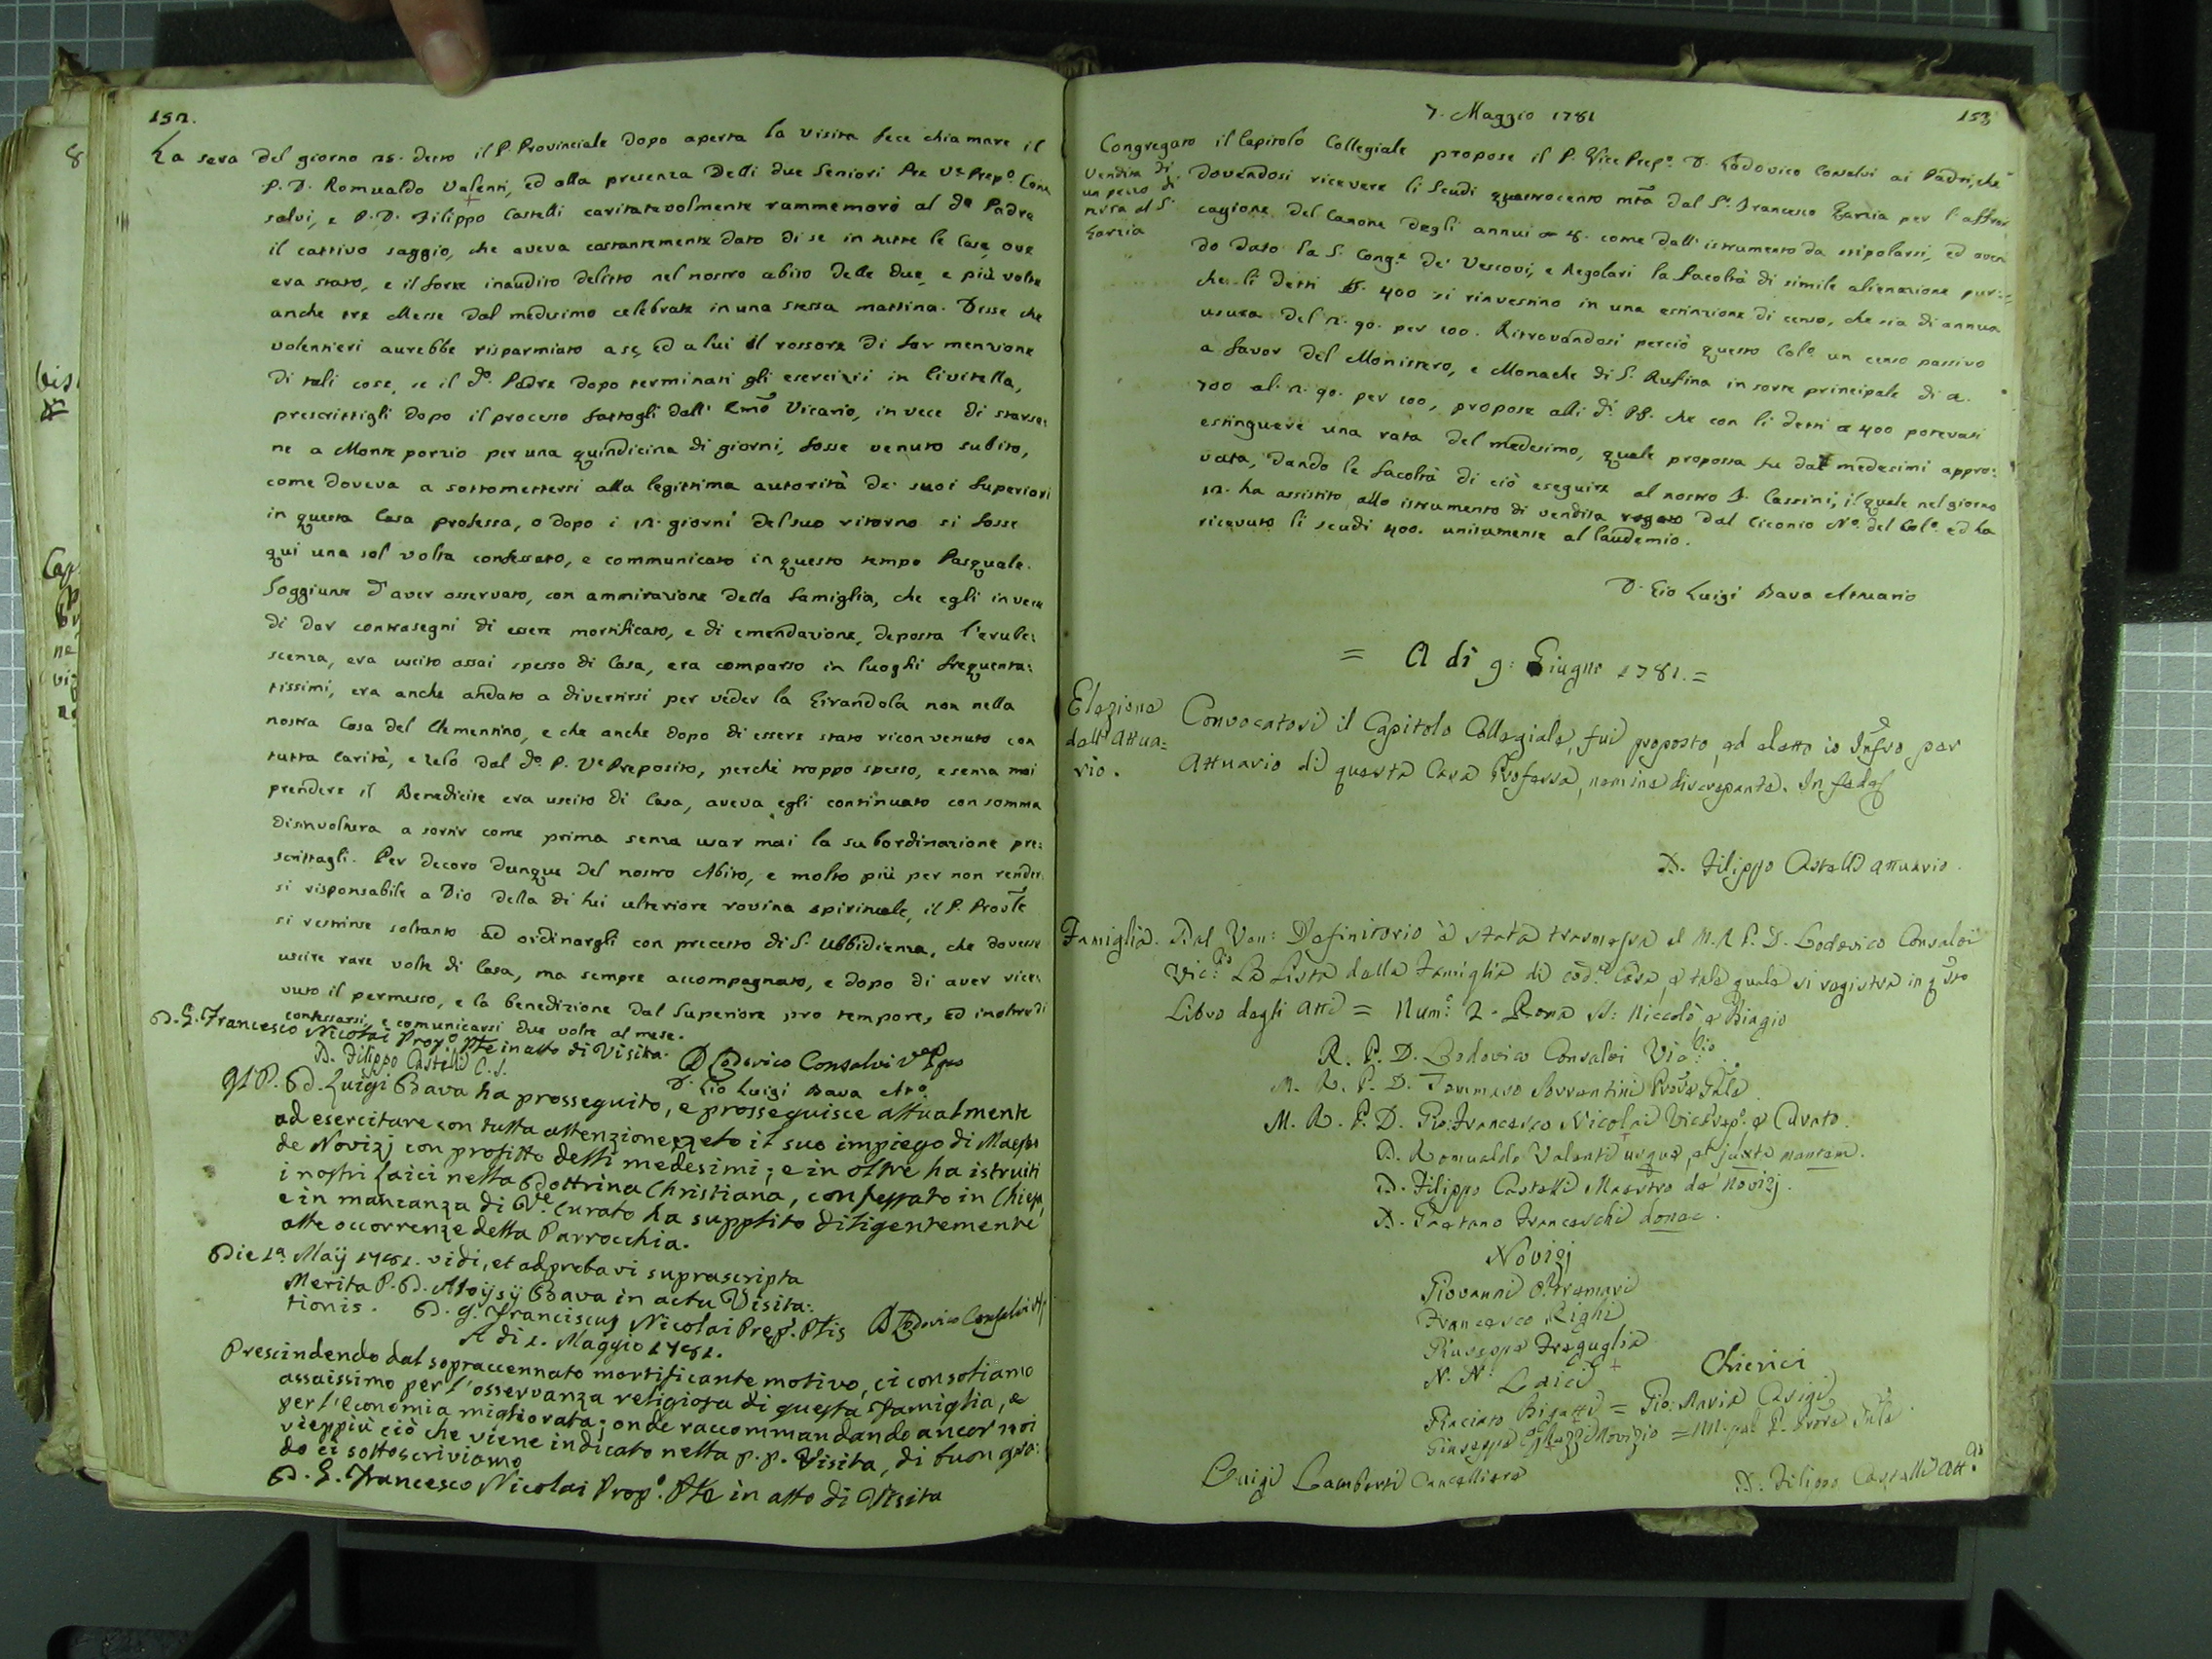 152.
La sera del giorno 25. detto il P. Provinciale dopo aperta la visita fece chiamare il
P. D. Romualdo Valenti, ed alla presenza delli due Seniori Pre Ve Prepo. Con
salvi, e P. D. Filippo Castelli caritatevolmente rammemorò al do Padre
il cattivo saggio, che aveva costantemente dato di se in tutte le Case, ove
era stato, e il forse inaudito delitto nel nostro abito delle due, e più volte
anche tre Messe dal medesimo celebrate in una stessa mattina. Disse che
volentieri aurebbe risparmiato a se, ed a lui il rossore di far menzione
di tali cose, se il do. Padre dopo terminati gli esercizii in Civitella,
prescrittigli dopo il processo fattogli dall' Emo Vicario, in vece di starse:
ne a Monte porzio per una quindicina di giorni, fosse venuto subito,
come doveva a sottomettersi alla legittima autorità de' suoi Superiori
in questa Casa professa, o dopo i 12. giorni del suo ritorno si fosse
qui una sol volta confessato, e communicato in questo tempo Pasquale.
Soggiunse d'aver osservato, con ammirazione della famiglia, che egli in vece
di dar contrasegni di essere mortificato, e di emendazione, deposta l'erube:
scenza, era uscito assai spesso di Casa, era comparso in luoghi frequenta:
tissimi, era anche andato a divertirsi per veder la Girandola non nella
nostra Casa del Clementino, e che anche dopo di essere stato riconvenuto con
tutta carità, e zelo dal do. P. Ve Preposito, perchè troppo spesso, e senza mai
prendere il Benedicite era uscito di Casa, aveva egli continuato con somma
disinvoltura a sortir come prima senza usar mai la subordinazione pre:
scrittagli. Per decoro dunque del nostro Abito, e molto più per non render
si risponsabile a Dio della di lui ulteriore rovina spirituale, il P. Proole
si restrinse soltanto ad ordinargli con precetto di S. Ubbidienza, che dovesse
uscire rare volte di Casa, ma sempre accompagnato, e dopo di aver rice:
vuto il permesso, e la benedizione dal Superiore pro tempore, ed inoltre di
confessarsi, e comunicarsi due volte al mese.
D. G. Francesco Nicolai Propo Ple in atto di Visita.
D. Filippo Castelli C. S. D Lodovico Consalvi Ve Ppto
D. Gio Luigi Bava Atto.
Il P. D. Luigi Bava ha prosseguito, e prosseguisce attualmente
ad esercitare con tutta attenzione, e zelo il suo impiego di Maestro
de Novizj con profitto delli medesimi; e in oltre ha istruiti
i nostri Laici nella Dottrina Christiana, confessato in Chiesa,
e in mancanza di Ve. Curato ha supplito diligentemente
alle occorrenze della Parrocchia.
Die 1a Maij 1781. vidi, et adprobavi suprascripta
Merita P. D. Aloijsij Bava in actu Visita:
tionis. D. J. Franciscus Nicolai Prep. Plis D Lodovico Consalvi
A di 1. Maggio 1781.
Prescindendo dal sopraccennato mortificante motivo, ci consoliamo
assaissimo per l'osservanza religiosa di questa Famiglia, e
per l'economia migliorata; onde raccommandando ancor noi
vieppiù ciò che viene indicato nella p. p. Visita, di buon gra:
do ci sottoscriviamo
D. G. Francesco Nicolai Propo. Ple in atto di Visita
7. Maggio 1781
153
Congregato il Capitolo Collegiale propose il P. Vice Prepo. D. Lodovico Consalvi ai Padri, che
Vendita di
un pezzo di
terra al Sr.
Garzia
dovendosi ricevere li Scudi quattrocento mta dal Sr. Francesco Garzia per l'affran
cazione del Canone degli annui 8. come dall' istrumento da stipolarsi, ed aven
do dato la S. Conge. de' Vescovi, e Regolari la facoltà di simile alienazione pur:
che li detti 400 si rinvestino in una estinzione di censo, che sia di annua
usura del 2. 90. per 100. Ritrovandosi perciò questo Colo. un censo passivo
a favor del Monistero, e Monache di S. Rufina in sorte principale di
700 al 2. 90. per 100, propose alli di. PP. che con li detti 400 potevasi
estinguere una rata del medesimo, quale proposta fu da medesimi appro:
vata, dando le facoltà di ciò eseguire al nostro Cassini; il quale nel giorno
12. ha assistito allo istrumento di vendita rogato dal Ciconio No. del Colo. ed ha
ricevuto li scudi 400. unitamente al laudemio.
D. Gio Luigi Bava Attuario
= A di 9: Giugno 1781. =
Elezione
dell' Attua=
rio.
Convocatosi il Capitolo Collegiale, fui proposto, ed eletto io Infro per
Attuario di questa Casa Professa, nemine discrepante. In fede
D. Filippo Castelli Attuario.
Famiglia. Dal Ven: Definitorio è stata trasmessa al M. R P. D. Lodovico Consalvi
Vic: La Lista della Famiglia di cod. Casa, e tale quale si registra in questo
Libro degli Atti = Num:o 2. Roma SS: Niccolò, e Biagio
R. P. D. Lodovico Consalvi Vic
M. R. P. D. Tommaso Sorrentini
M. R. P. D. Gio: Francesco Nicolai VicePrepo. e Curato.
D. Romualdo Valenti usque, et juxta mentem.
D. Filippo Castelli Maestro de' Novizj.
D. Gaetano Franceschi donec.
Novizj
Giovanni Oltremari
Francesco Righi
Giuseppe Fraguglia
N. N:
Laici
Chierici
Giaciato Bigatti = Gio: Maria Casigi
Giuseppe Novizio =
Luigi Lamberti Cancelliere
D. Filippo Castelli Atto.